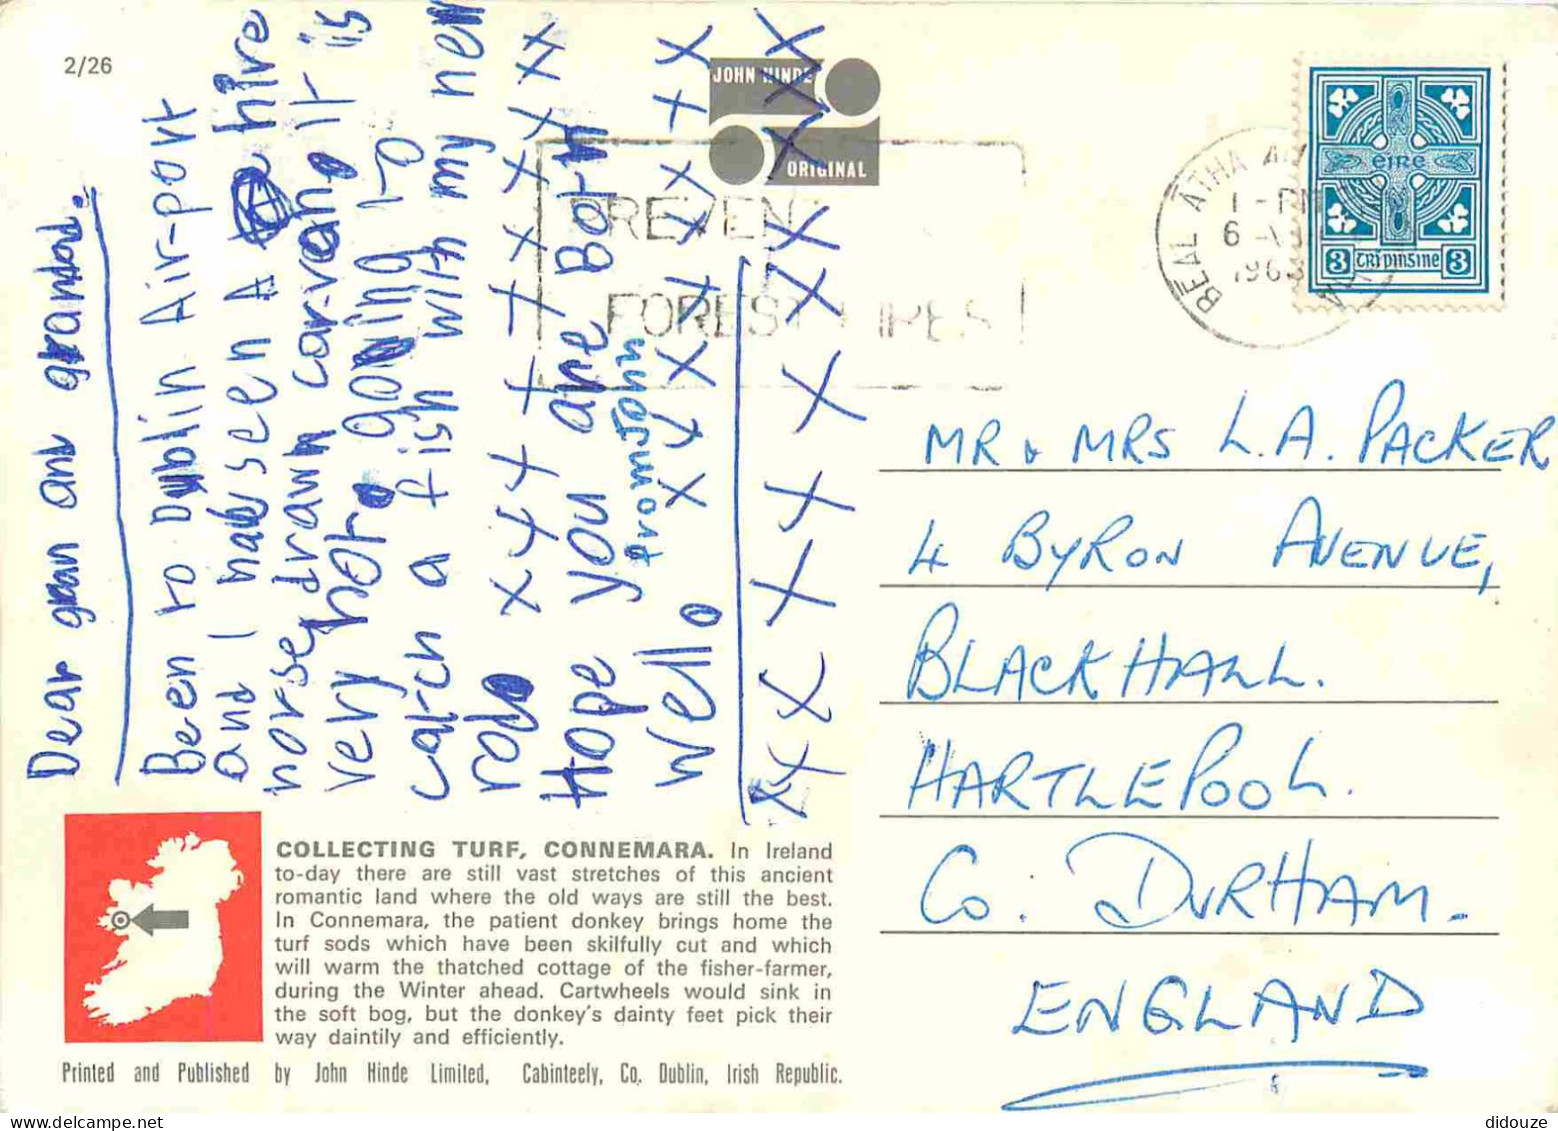 2/26
Dear gran and grandad.
Been to Dublin Air-port
and I hab seen A hire
horse drawn carvang It is
very hot. gowing to
catch a fish with my new
rod x x x x x x x x x x x
Hope you are Both
from John
Well. x x x x x x x x
x x x x x x x x x x x x
JOHN HINDE
ORIGINAL
PREVENT
FOREST FIRES
BÉAL ÁTHA
1 - PM
6
1963
EIRE
3 TRÍ PINSINE 3
MR & MRS L.A. PACKER
4 BYRON AVENUE,
BLACKHALL.
HARTLEPOOL.
Co. DURHAM.
ENGLAND
COLLECTING TURF, CONNEMARA. In Ireland
to-day there are still vast stretches of this ancient
romantic land where the old ways are still the best.
In Connemara, the patient donkey brings home the
turf sods which have been skilfully cut and which
will warm the thatched cottage of the fisher-farmer,
during the Winter ahead. Cartwheels would sink in
the soft bog, but the donkey's dainty feet pick their
way daintily and efficiently.
Printed and Published by John Hinde Limited, Cabinteely, Co. Dublin, Irish Republic.
didouze